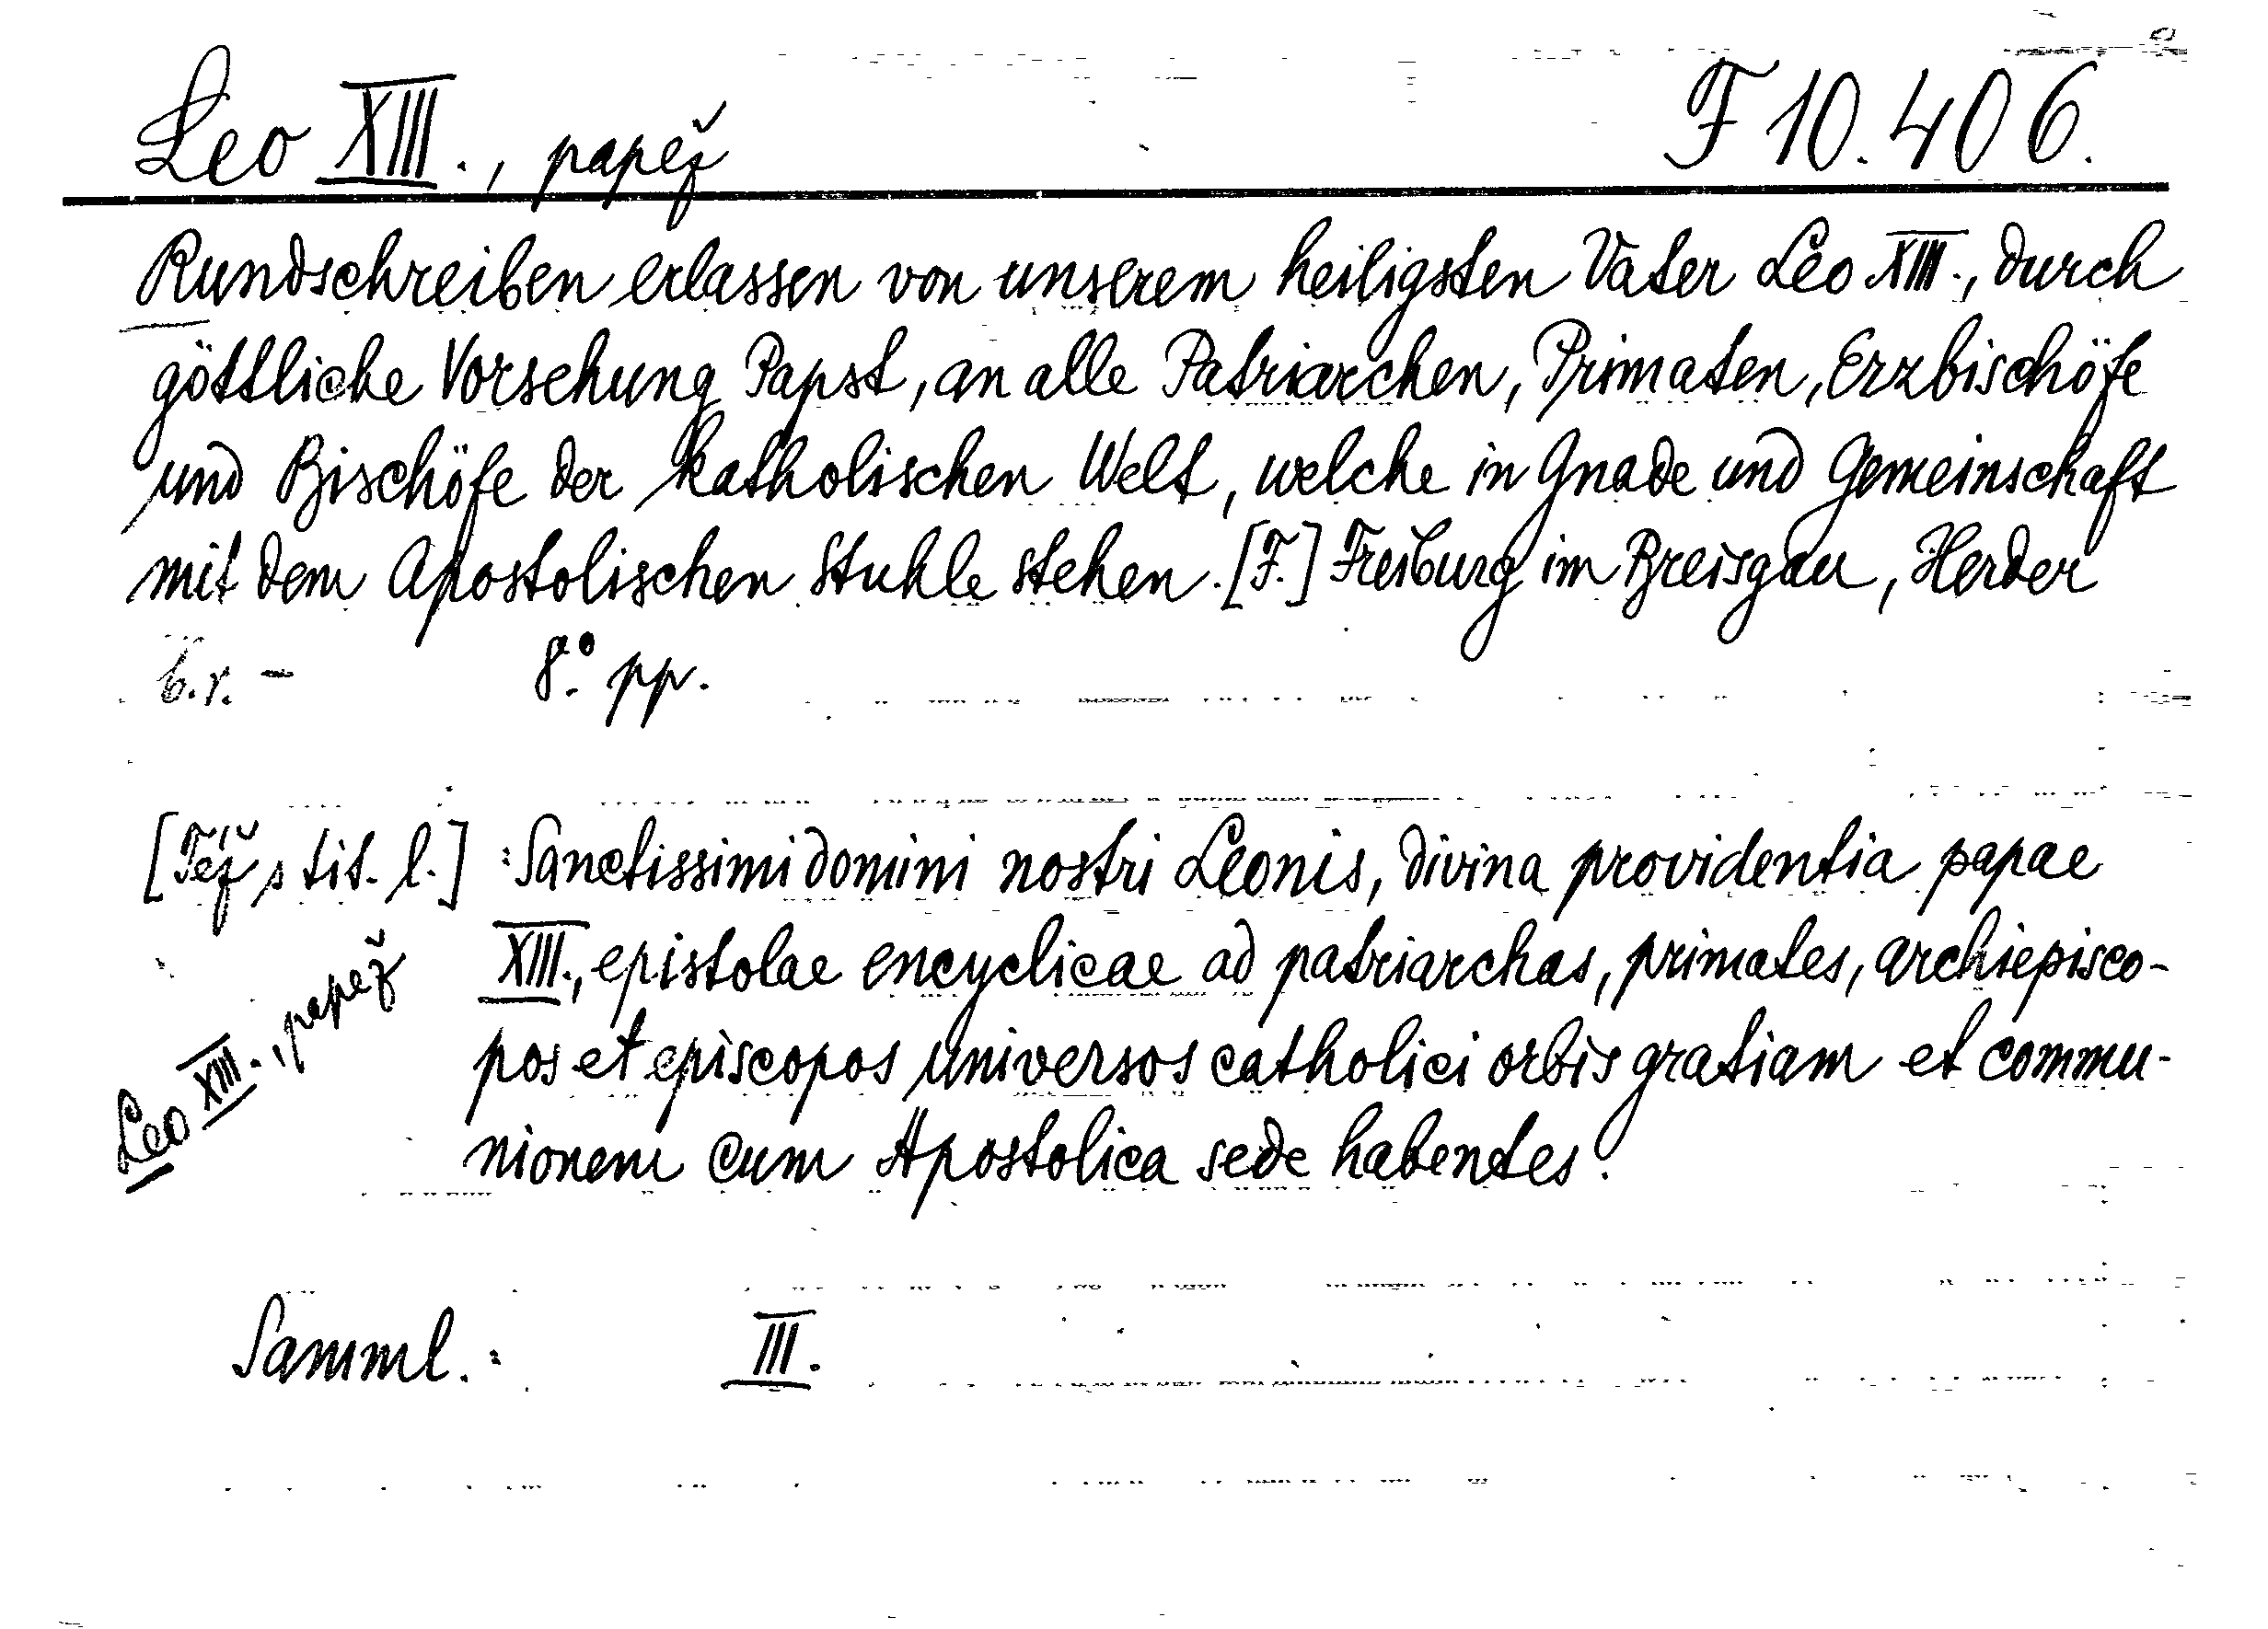 Leo XIII., papež
F 10.406.
Rundschreiben erlassen von unserem heiligsten Vater Leo XIII., durch
göttliche Vorsehung Papst, an alle Patriarchen, Primaten, Erzbischöfe
und Bischöfe der katholischen Welt, welche in Gnade und Gemeinschaft
mit dem Apostolischen Stuhle stehen. [F.] Freiburg im Breisgau, Herder
b.r. - 8.° pp.
[Též s tit. l.] : Sanctissimi domini nostri Leonis, divina providentia papae
XIII., epistolae encyclicae ad patriarchas, primates, archiepisco-
pos et episcopos universos catholici orbis gratiam et commu-
nionem cum Apostolica sede habentes.
Leo XIII., papež
Samml. : III.